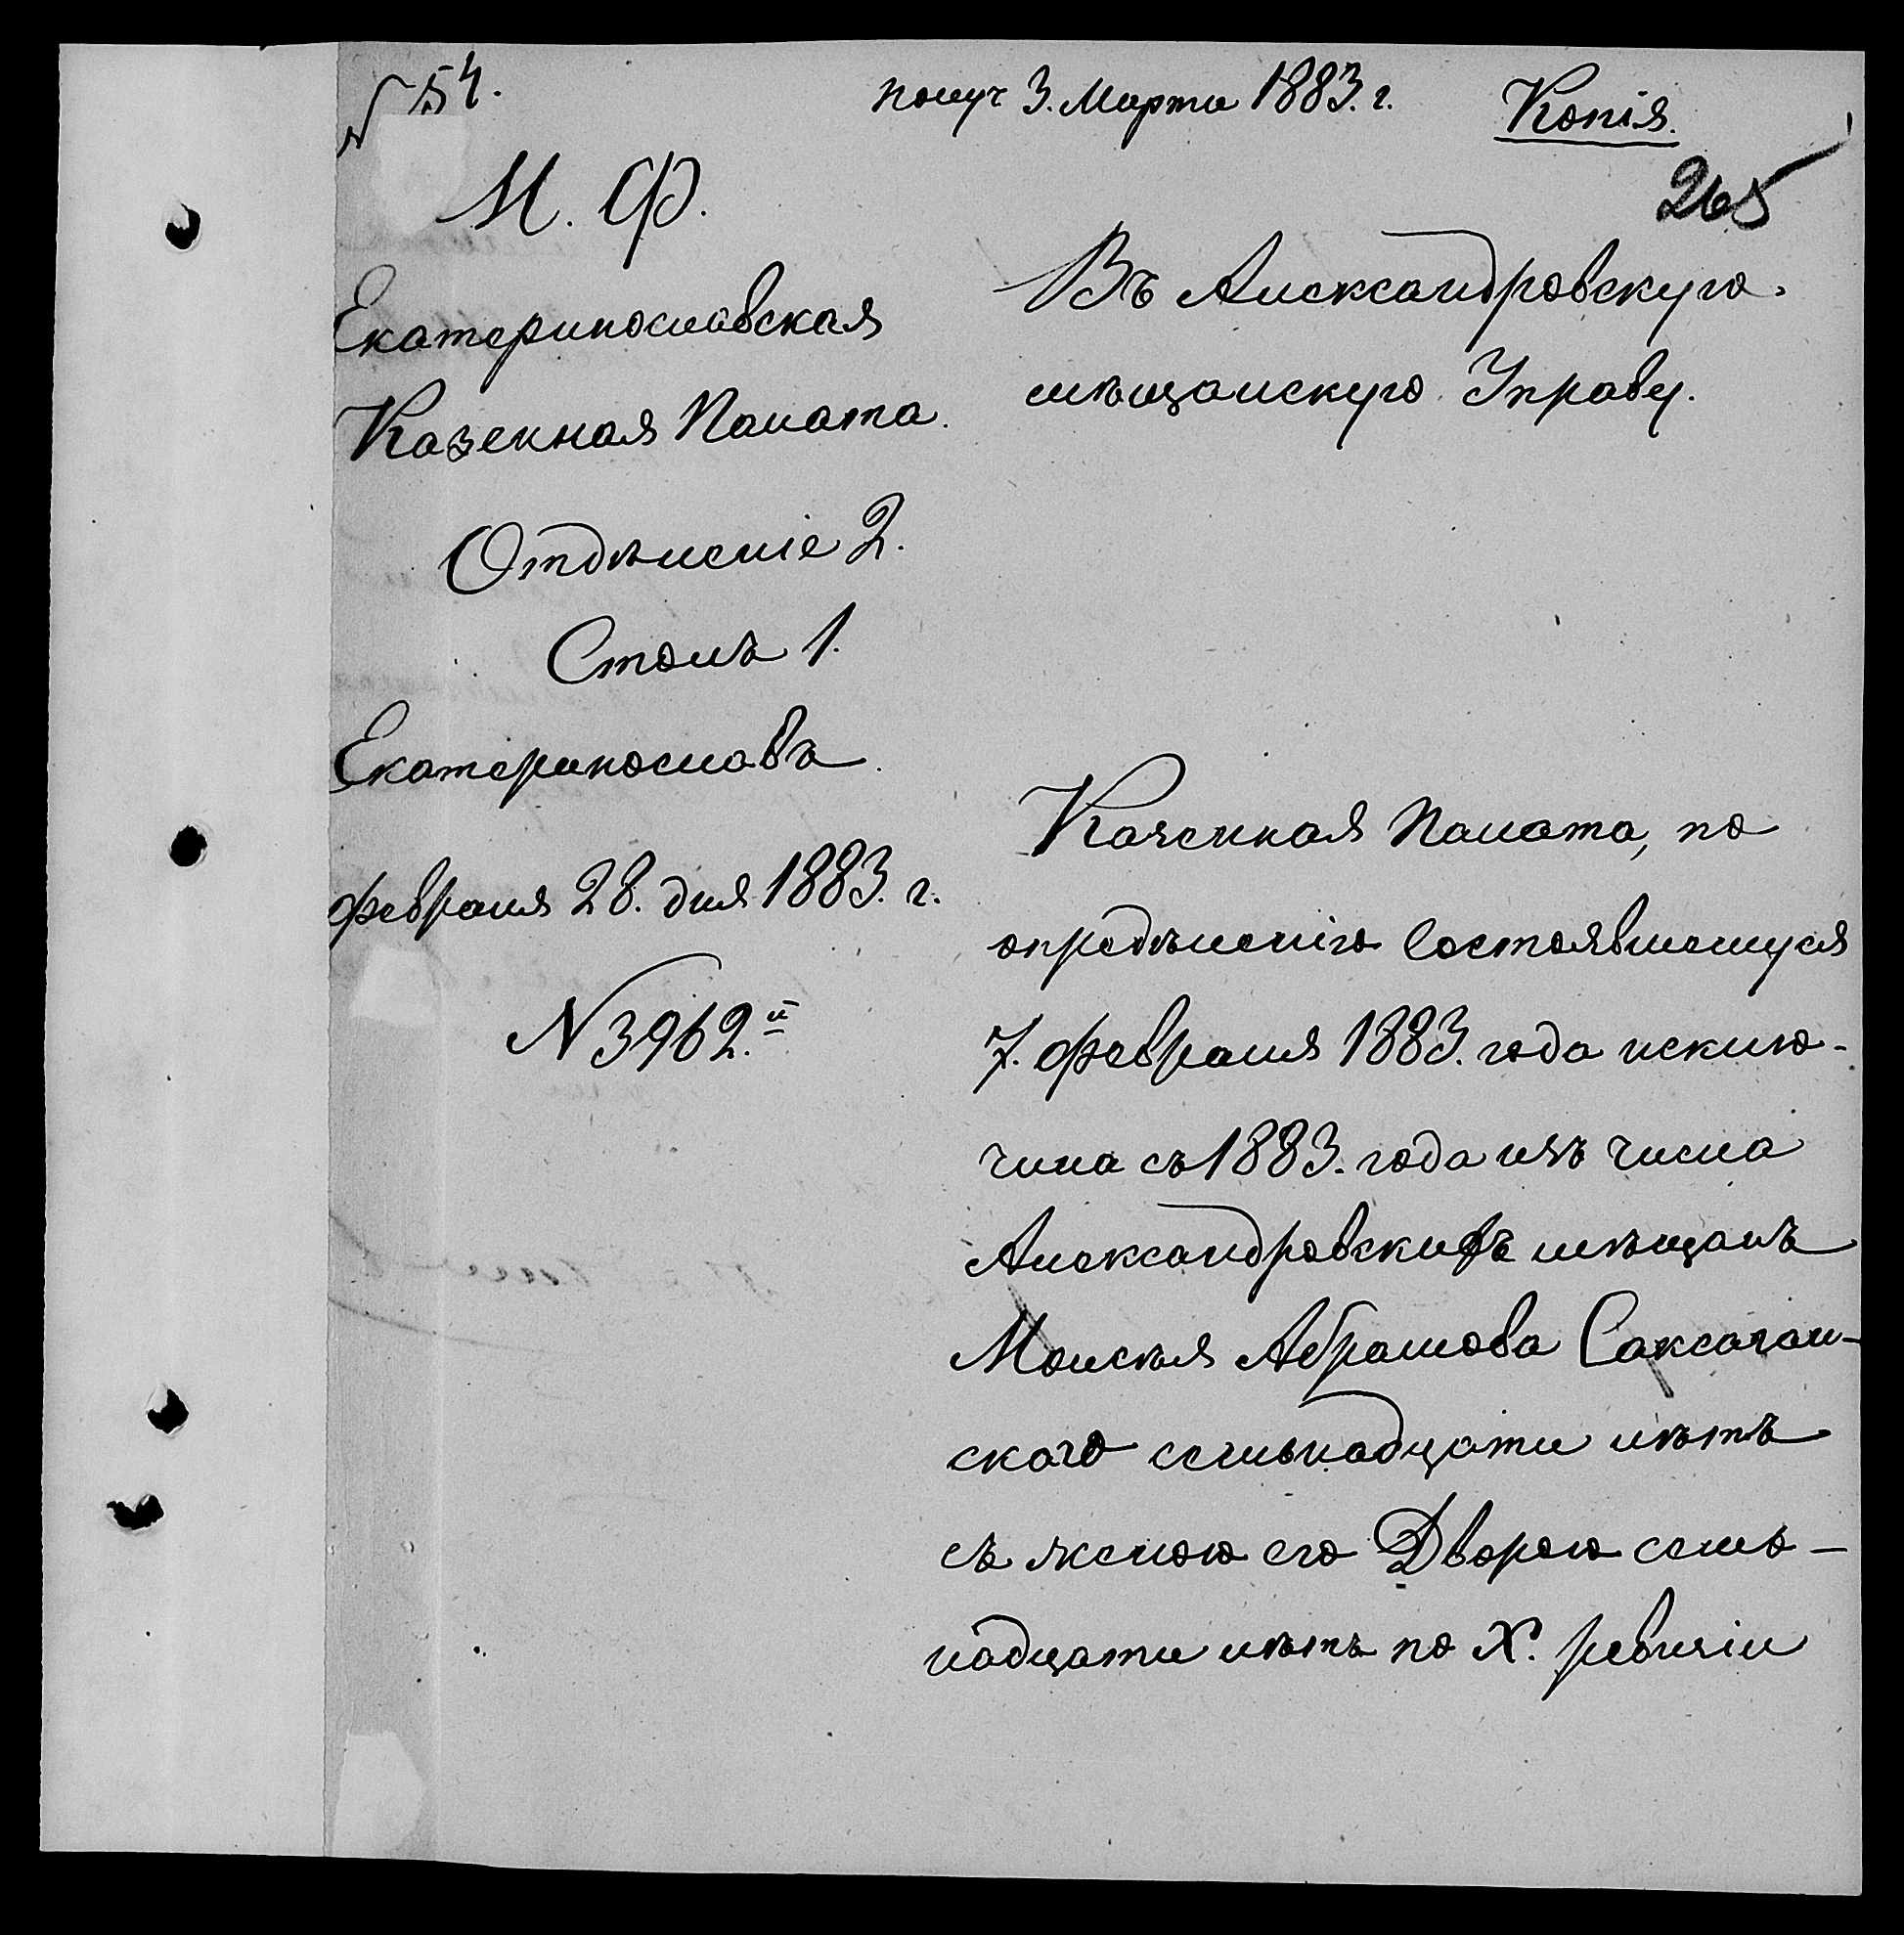 № 54.
получ 3. Марта 1883. г.
Копія.
265
М. Ф.
Екатеринославская
Казенная Палата.
Отдѣленіе 2.
Столъ 1.
Екатеринославъ.
Февраля 28. дня 1883. г.
N 3962.й
Въ Александровскую
мѣщанскую Управу.
Казенная Палата, по
опредѣленію состоявшемуся
7. Февраля 1883. года исклю-
чила съ 1883. года изъ числа
Александровскихъ мѣщанъ
Моисея Абрамова Саксаган-
скаго семьнадцати лѣтъ
съ женою его Дворою семь-
надцати лѣтъ по X. ревизіи